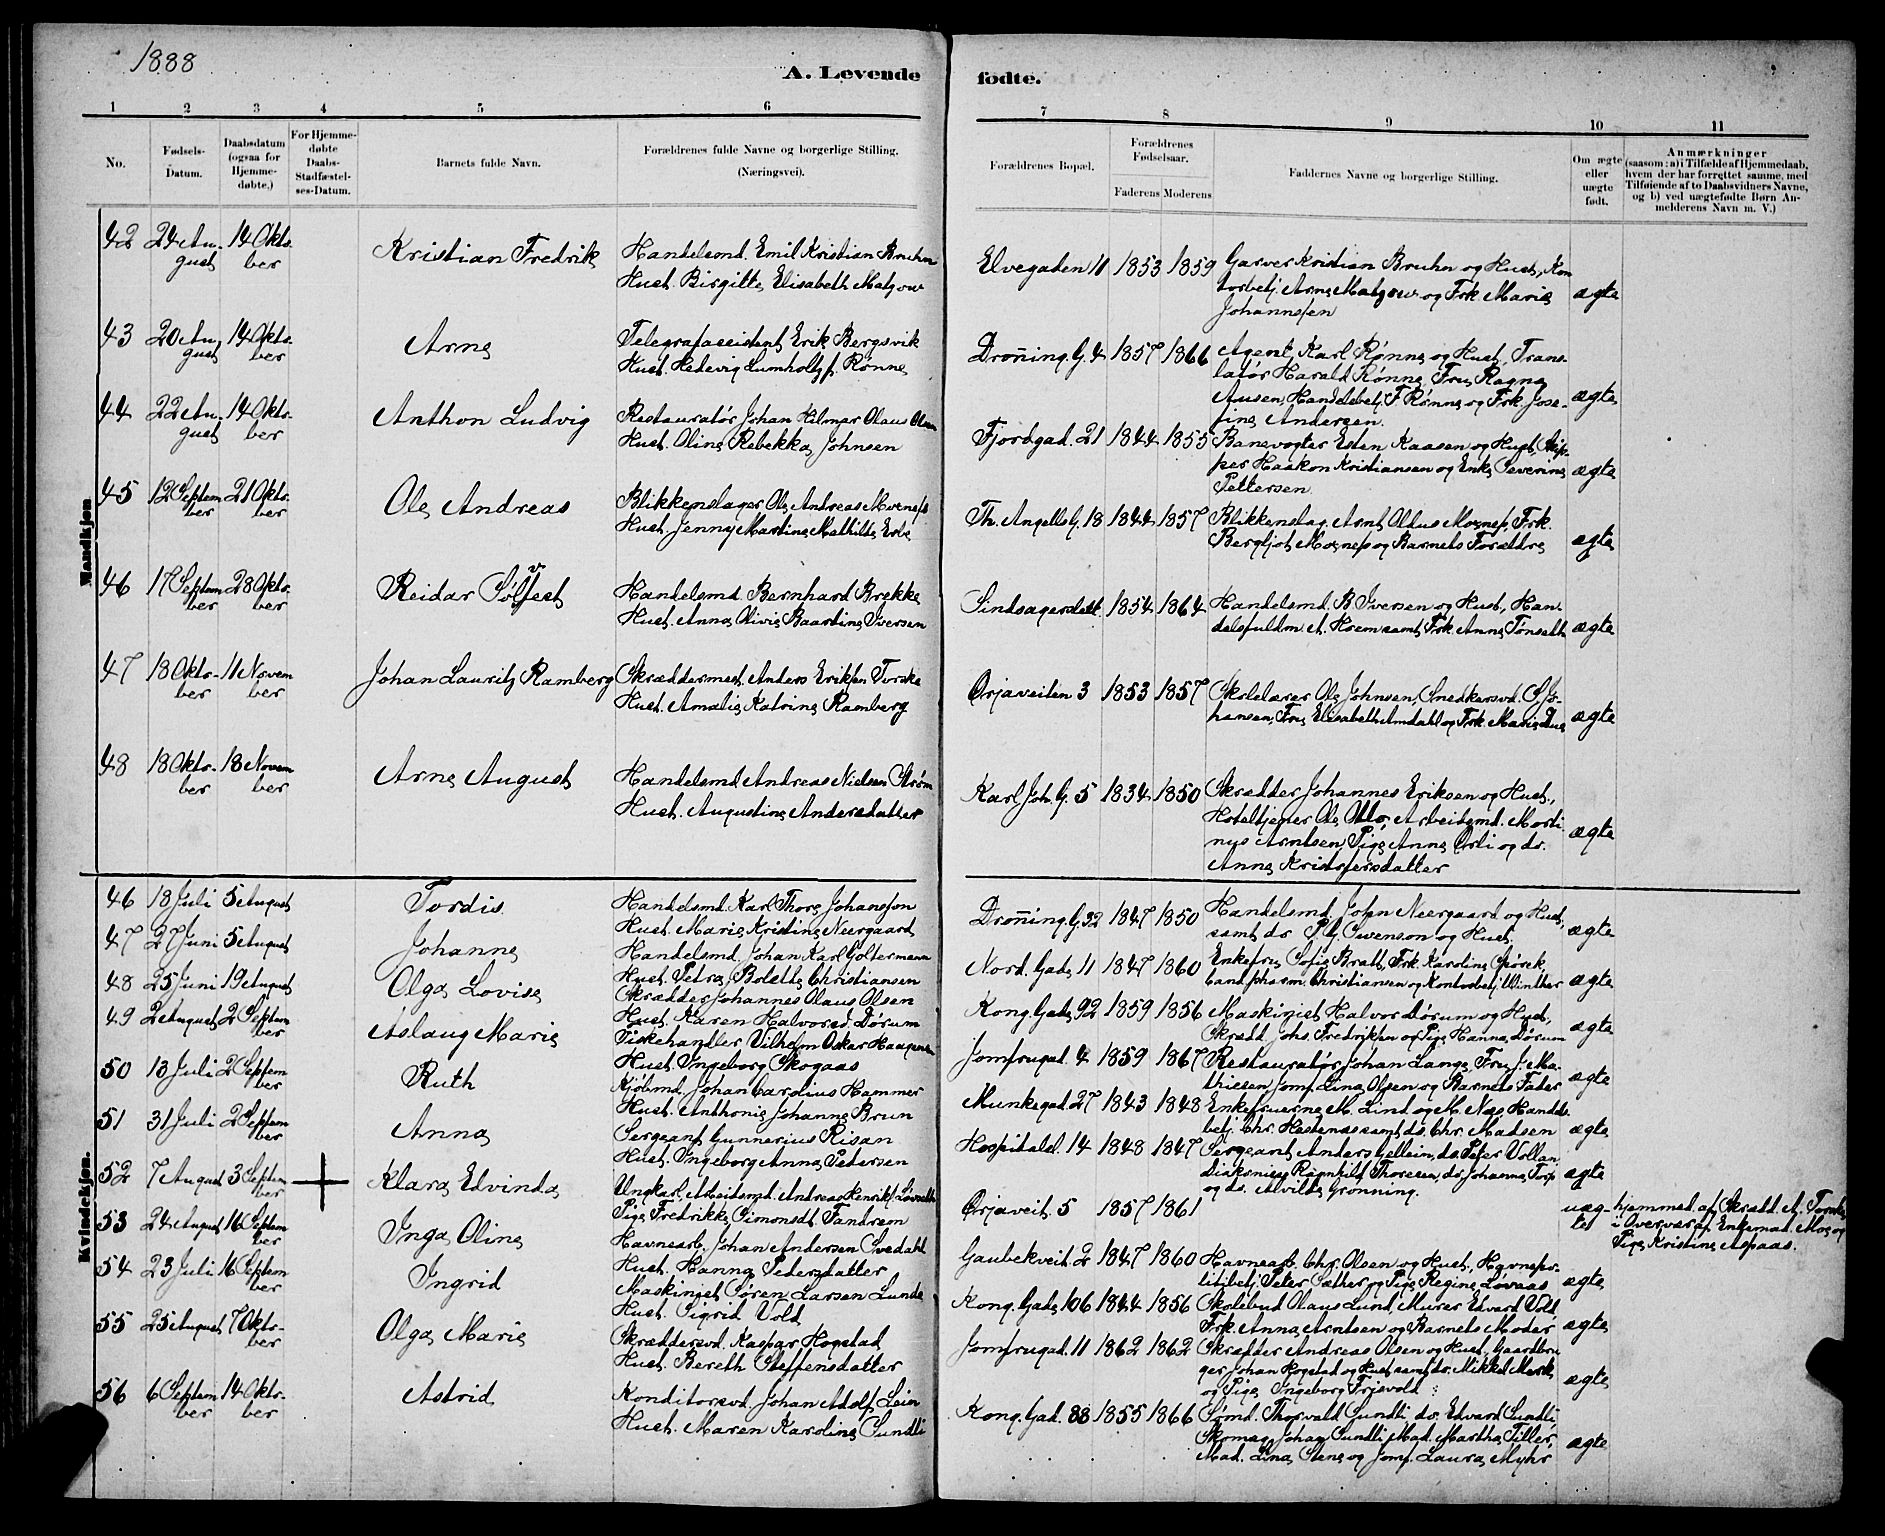 1888
A. Levende fødte.
1 2 3 4 5 6 7 8 9 10 11
No.
Fødsels-Datum.
Daabsdatum (ogsaa for Hjemme-døbte.)
For Hjemme-døbte Daabs-Stadfæstel-ses-Datum.
Barnets fulde Navn.
Forældrenes fulde Navne og borgerlige Stilling.
(Næringsvei).
Forældrenes Bopæl.
Forældrenes Fødselsaar.
Faderens Moderens
Faddernes Navne og borgerlige Stilling.
Om ægte eller uægte født.
Anmærkninger
(saasom: a) i Tilfælde af Hjemmedaab,
hvem der har forrettet samme, med
Tilføiende af to Daabsvidners Navne,
og b) ved uægtefødte Børn An-
melderens Navn m. V.)
Mandkjøn
42 24 Au-gust 14 Okto-ber Kristian Fredrik
Handelsmd. Emil Kristian Bruhn
Hust. Birgitte Elisabeth Matzow
Elvegaden 11 1853 1859
Garver Kristian Bruhn og Hust, Kon
torbetj. Arne Matzow og Frk Marie
Johannsen
ægte
43 20 Au-gust 14 Okto-ber Arne
Telegrafassistent Erik Bergsvik
Hust. Hedevig Lumholtz f. Rønne
Dronning. G. 4 1857 1866
Agent Karl Rønne og Hust, Trans-
latør Harald Rønne, Fru Ragna
Ansen, Handelsbetj. F Rønne og Frk. Jose-
fine Andersen.
ægte
44 22 Au-gust 14 Okto-ber Anthon Ludvig
Restauratør Johan Hilmar Olaus Olsen
Hust. Oline Rebekka Johnsen
Fjordgad. 21 1844 1855
Banevogter Esten Kaasen og Hust, Skip-
per Haakon Kristiansen og Enke Severine
Pettersen
ægte
45 12 Septem ber 21 Okto-ber Ole Andreas
Blikkenslager Ole Andreas Moenes
Hust. Jenny Martine Mathilde
Th. Angells G. 18 1844 1857
Blikkenslag. Arnt Oldus Moenes, Frk.
Bergljot Moenes og Barnets Forældre
ægte
46 17 Septem ber 28 Okto-ber Reidar Sølfest
v
Handelsmd Bernhard Brekke
Hust. Anna Olivie Baardine Iversen
1854 1864
Handelsmd. B Iversen og Hust, Han-
delsfuldm A. Hoem samt Frk. Anna Tønseth
ægte
47 18 Okto-ber 11 Novem ber Johan Lauritz Ramberg
Skræddermest. Anders Eriksen Torske
Hust. Amalie Katrine Ramberg
Ørjaveiten 3 1853 1857
Skolelærer Ole Johnsen, Snedkersvd. S Jo-
hansen, Fru Elisabeth Amdahl og Frk. Marie Due
ægte
48 18 Okto-ber 18 Novem ber Arne August
Handelsmd Andreas Nielsen Strøm
Hust. Augustine Andersdatter
Karl Joh. G. 5 1834 1850
Skrædder Johannes Eriksen og Hust.,
Hoteltjener Ole Otto, Arbeidsmd. Morti
nus Arntsen, Pige Anna Orli og do.
Anna Kristofersdatter
ægte
Kvindekjøn.
46 18 Juli 5 August Tordis
Handelsmd. Karl Thore Johansson
Hust. Marie Kristine Neergaard
Dronning. G. 32 1847 1850
Handelsmd. John Neergaard og Hust,
samt do P. G. Svenson og Hust,
ægte
47 27 Juni 5 August Johanne
Handelsmd. Johan Karl Goltermann
Hust. Petra Bolette Christiansen
Nord. Gade 11 1847 1860
Enkefru Sofie Bratt, Frk. Karoline Spørck
Cand pharm. Christiansen og Kontorbetj. Winther
ægte
48 25 Juni 19 August Olga Lovise
Skrædder Johannes Olaus Olsen
Hust. Karen Halvorsd. Dørum
Kong. Gade 92 1859 1856
Maskinist Halvor Dørum og Hust,
Skrædd Johs. Fredriksen og Pige Hanna Dørum
ægte
49 2 August 2 Septem ber Aslaug Marie
Fiskehandler Vilhelm Oskar Haagensen
Hust. Ingeborg Skogaas
Jomfrugad. 4 1859 1867
Restauratør Johan Lange, Fru J. Ma-
thiesen, Jomf. Lina Olsen og Barnets Fader
ægte
50 13 Juli 2 Septem ber Ruth
Kjøbmd. Johan Carolius Hammer
Hust. Anthonie Johanne Brun
Munkegad. 27 1843 1848
Enkefruerne M. Lind og M. Næs, Handels
betj. Chr. Hestenæs samt do. Chr. Madsen
ægte
51 31 Juli 2 Septem ber Anna
Sergeant Gunnerius Risan
Hust. Ingeborg Anna Petersen
Hospitalsl. 14 1848 1847
Sergeant Anders Gellein, do Peter Vollan
Diakonisse Ragnhild Thoresen, do. Johanna Torp
og do. Alvilde Grønning.
ægte
52 7 August 3 Septem ber + Klara Edvinda
Ungkarl, Arbeidsmd. Andreas Henriks.
Pige Fredrikke Simonsdt. Tandrem
Ørjaveit. 5 1857 1861
uæg-te
hjemmed. af Skrædd. A.
i Overvær af Enkemad. Moe og
Pige Kristine Aspaas.
53 24 August 16 Septem ber Inga Oline
Havnearb. Johan Andersen Svedahl
Hust. Hanna Pedersdatter
Gaubekveit. 2 1847 1860
Havnearb. Chr. Olsen og Hust, Havnepo-
litibetj. Peter Sæther og Pige Regine Løvaas
ægte
54 23 Juli 16 Septem ber Ingrid
Maskinist Søren Larsen Lunde
Hust. Sigrid Vold
Kong. Gade 106 1844 1856
Skolebud Olaus Lund, Murer Edvard Vold
Frk. Anna Arntsen og Barnets Moder
ægte
55 25 August 7 Okto-ber Olga Marie
Skræddersvd. Kaspar Hogstad
Hust. Bereth Steffensdatter
Jomfrugad. 11 1862 1862
Skrædder Andreas Olsen og Hust, Gaardbru
ger Johan Hogstad og Hust samt do. Mikkel Mork,
og Pige Ingeborg Trisvold
ægte
56 6 Septem ber 14 Okto-ber Astrid
Konditorsvd. Johan Adolf Lein
Hust. Maren Karoline Sundli
Kong. Gad. 88 1855 1866
Sømd. Thorvald Sundli, do. Edvard Sundli,
Skomag. Johan Sundli, Mad. Martha Tiller,
Mad. Lina Stene og Jomf. Laura Myhr
ægte